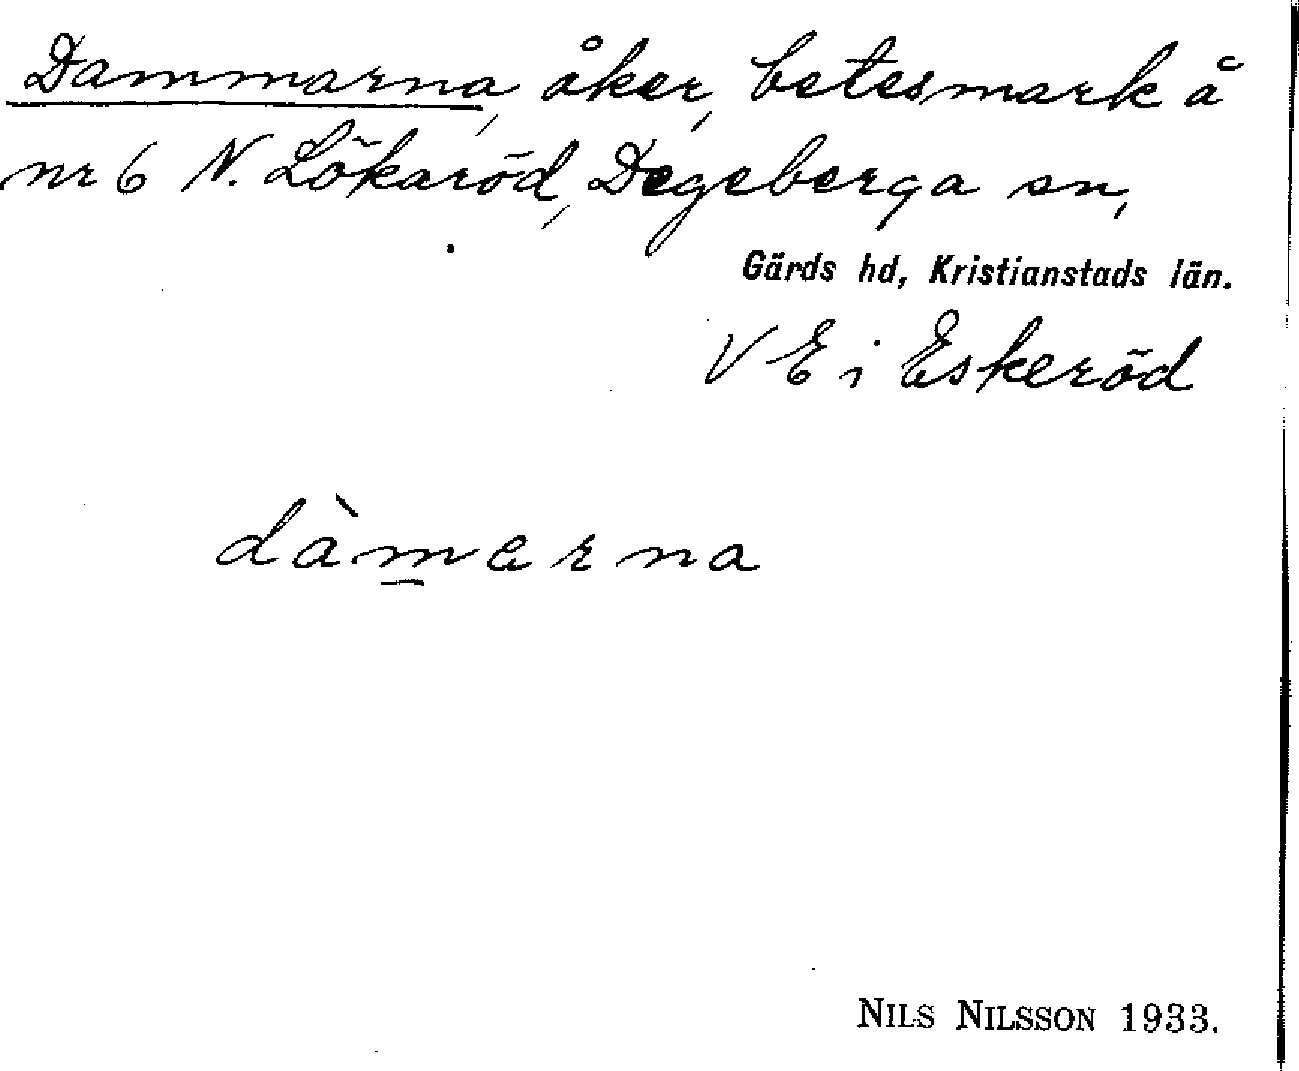 Dammarna, åker, betesmark å
nr 6 N. Lökaröd, Degeberga sn,
Gärds hd, Kristianstads län.
V E i Eskeröd
dàm̲erna
NILS NILSSON 1933.